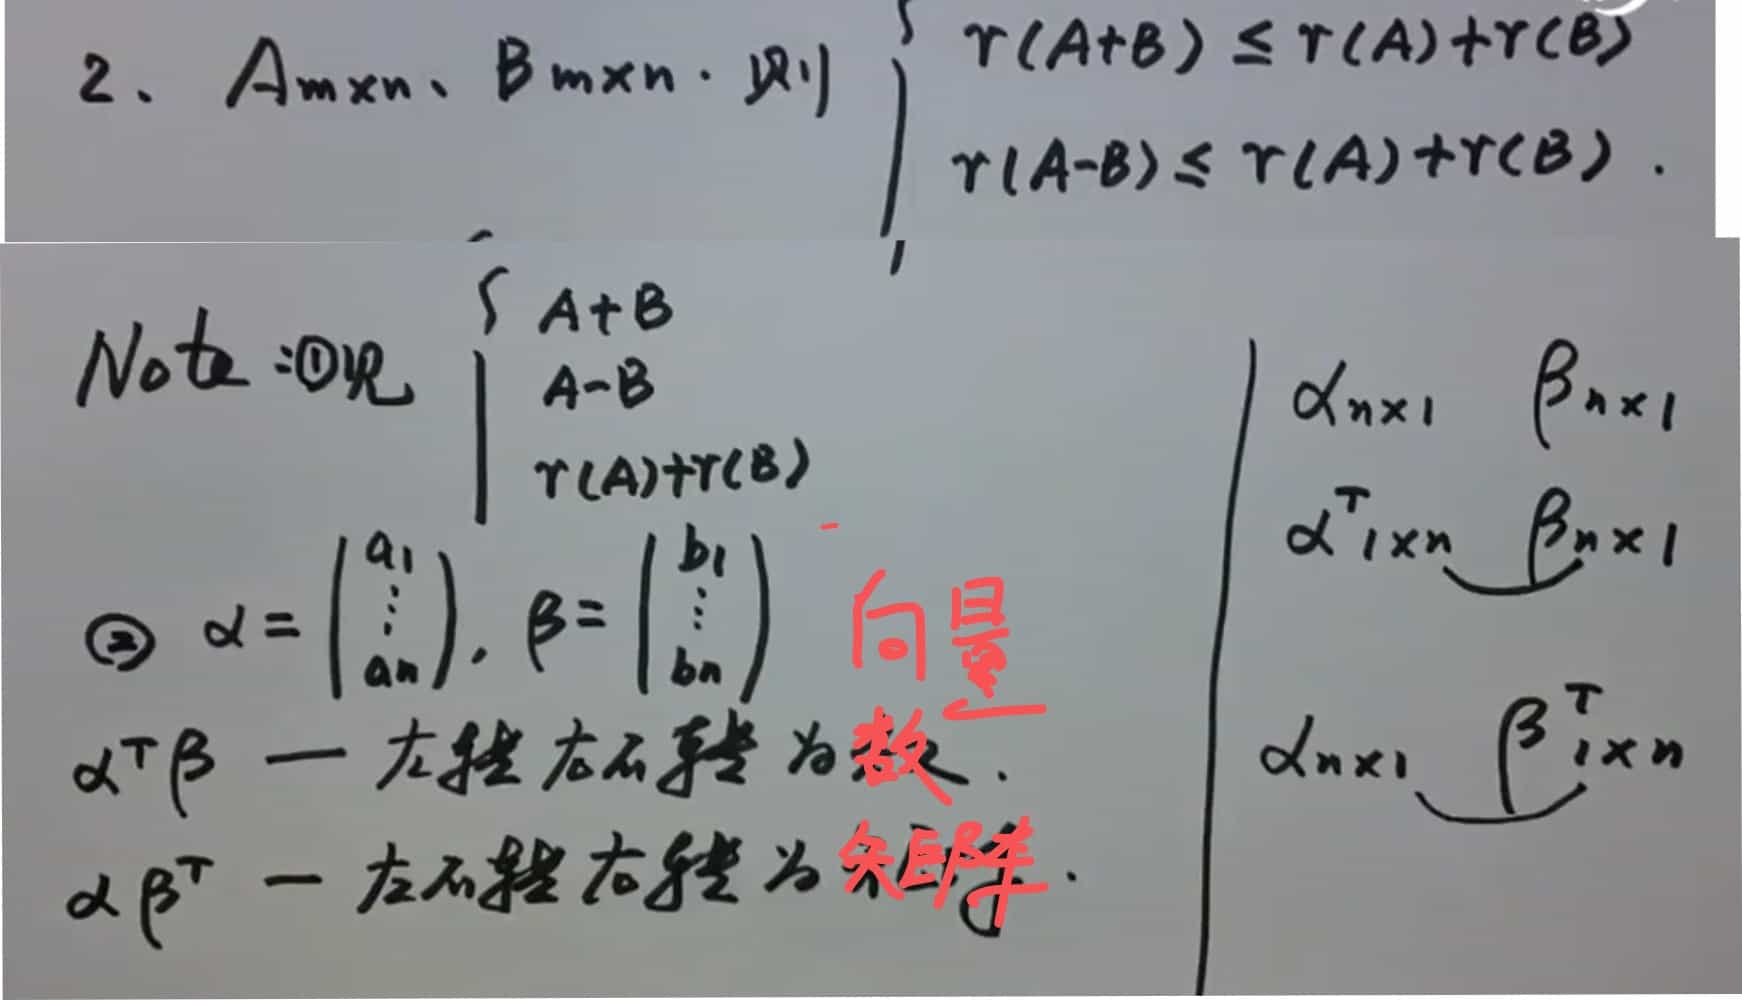 2、Am×n、Bm×n.则{r(A+B)≤r(A)+r(B)
r(A-B)≤r(A)+r(B).
Note:①见{A+B
A-B
r(A)+r(B)
② α=(a1⋮an),β=(b1⋮bn) 向量
αᵀβ — 左转右不转为数.
αβᵀ — 左不转右转为矩阵.
αn×1 βn×1
αᵀ1×n βn×1
αn×1 βᵀ1×n